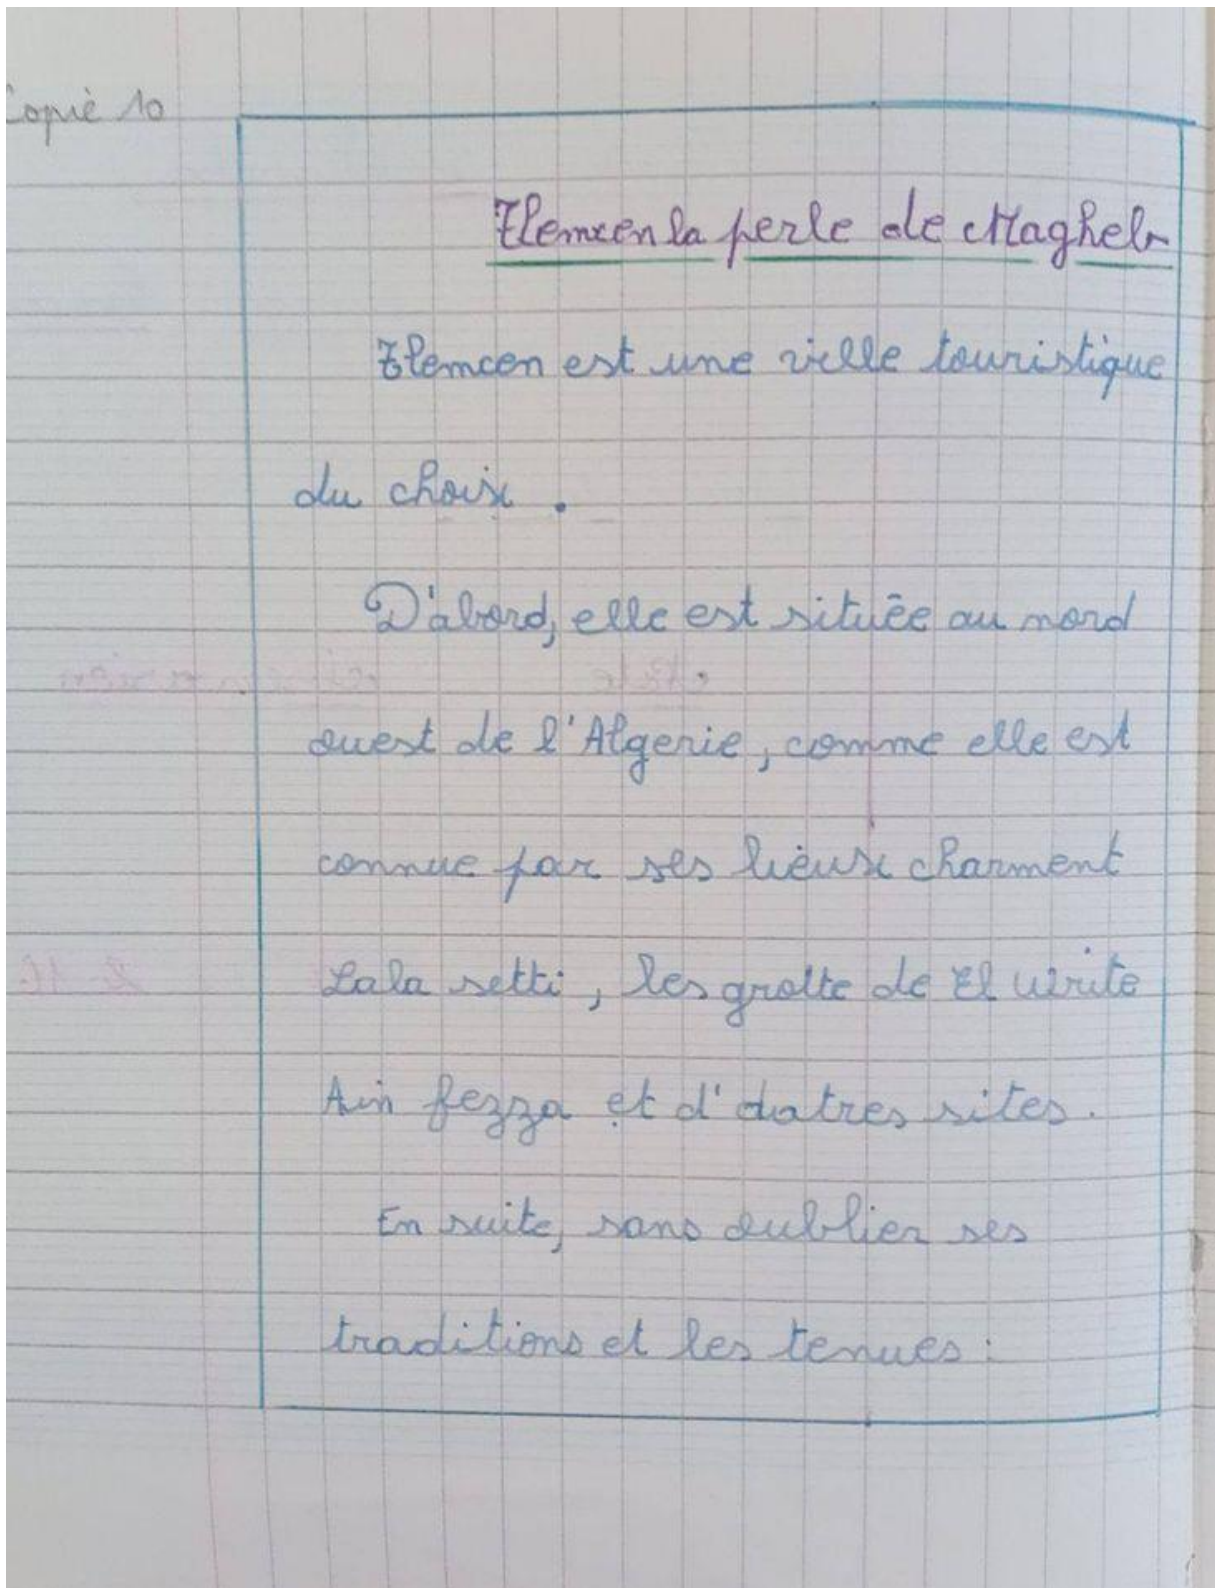 Copie 10
Tlemcen la perle de Magheb
Tlemcen est une ville touristique
du choix.
D'abord, elle est située au nord
ouest de l'Algerie, comme elle est
connue par ses lieux charment
Lala setti, les grotte de El
Ain fezza et d' sites.
En suite, sans oublier ses
traditions et les tenues.